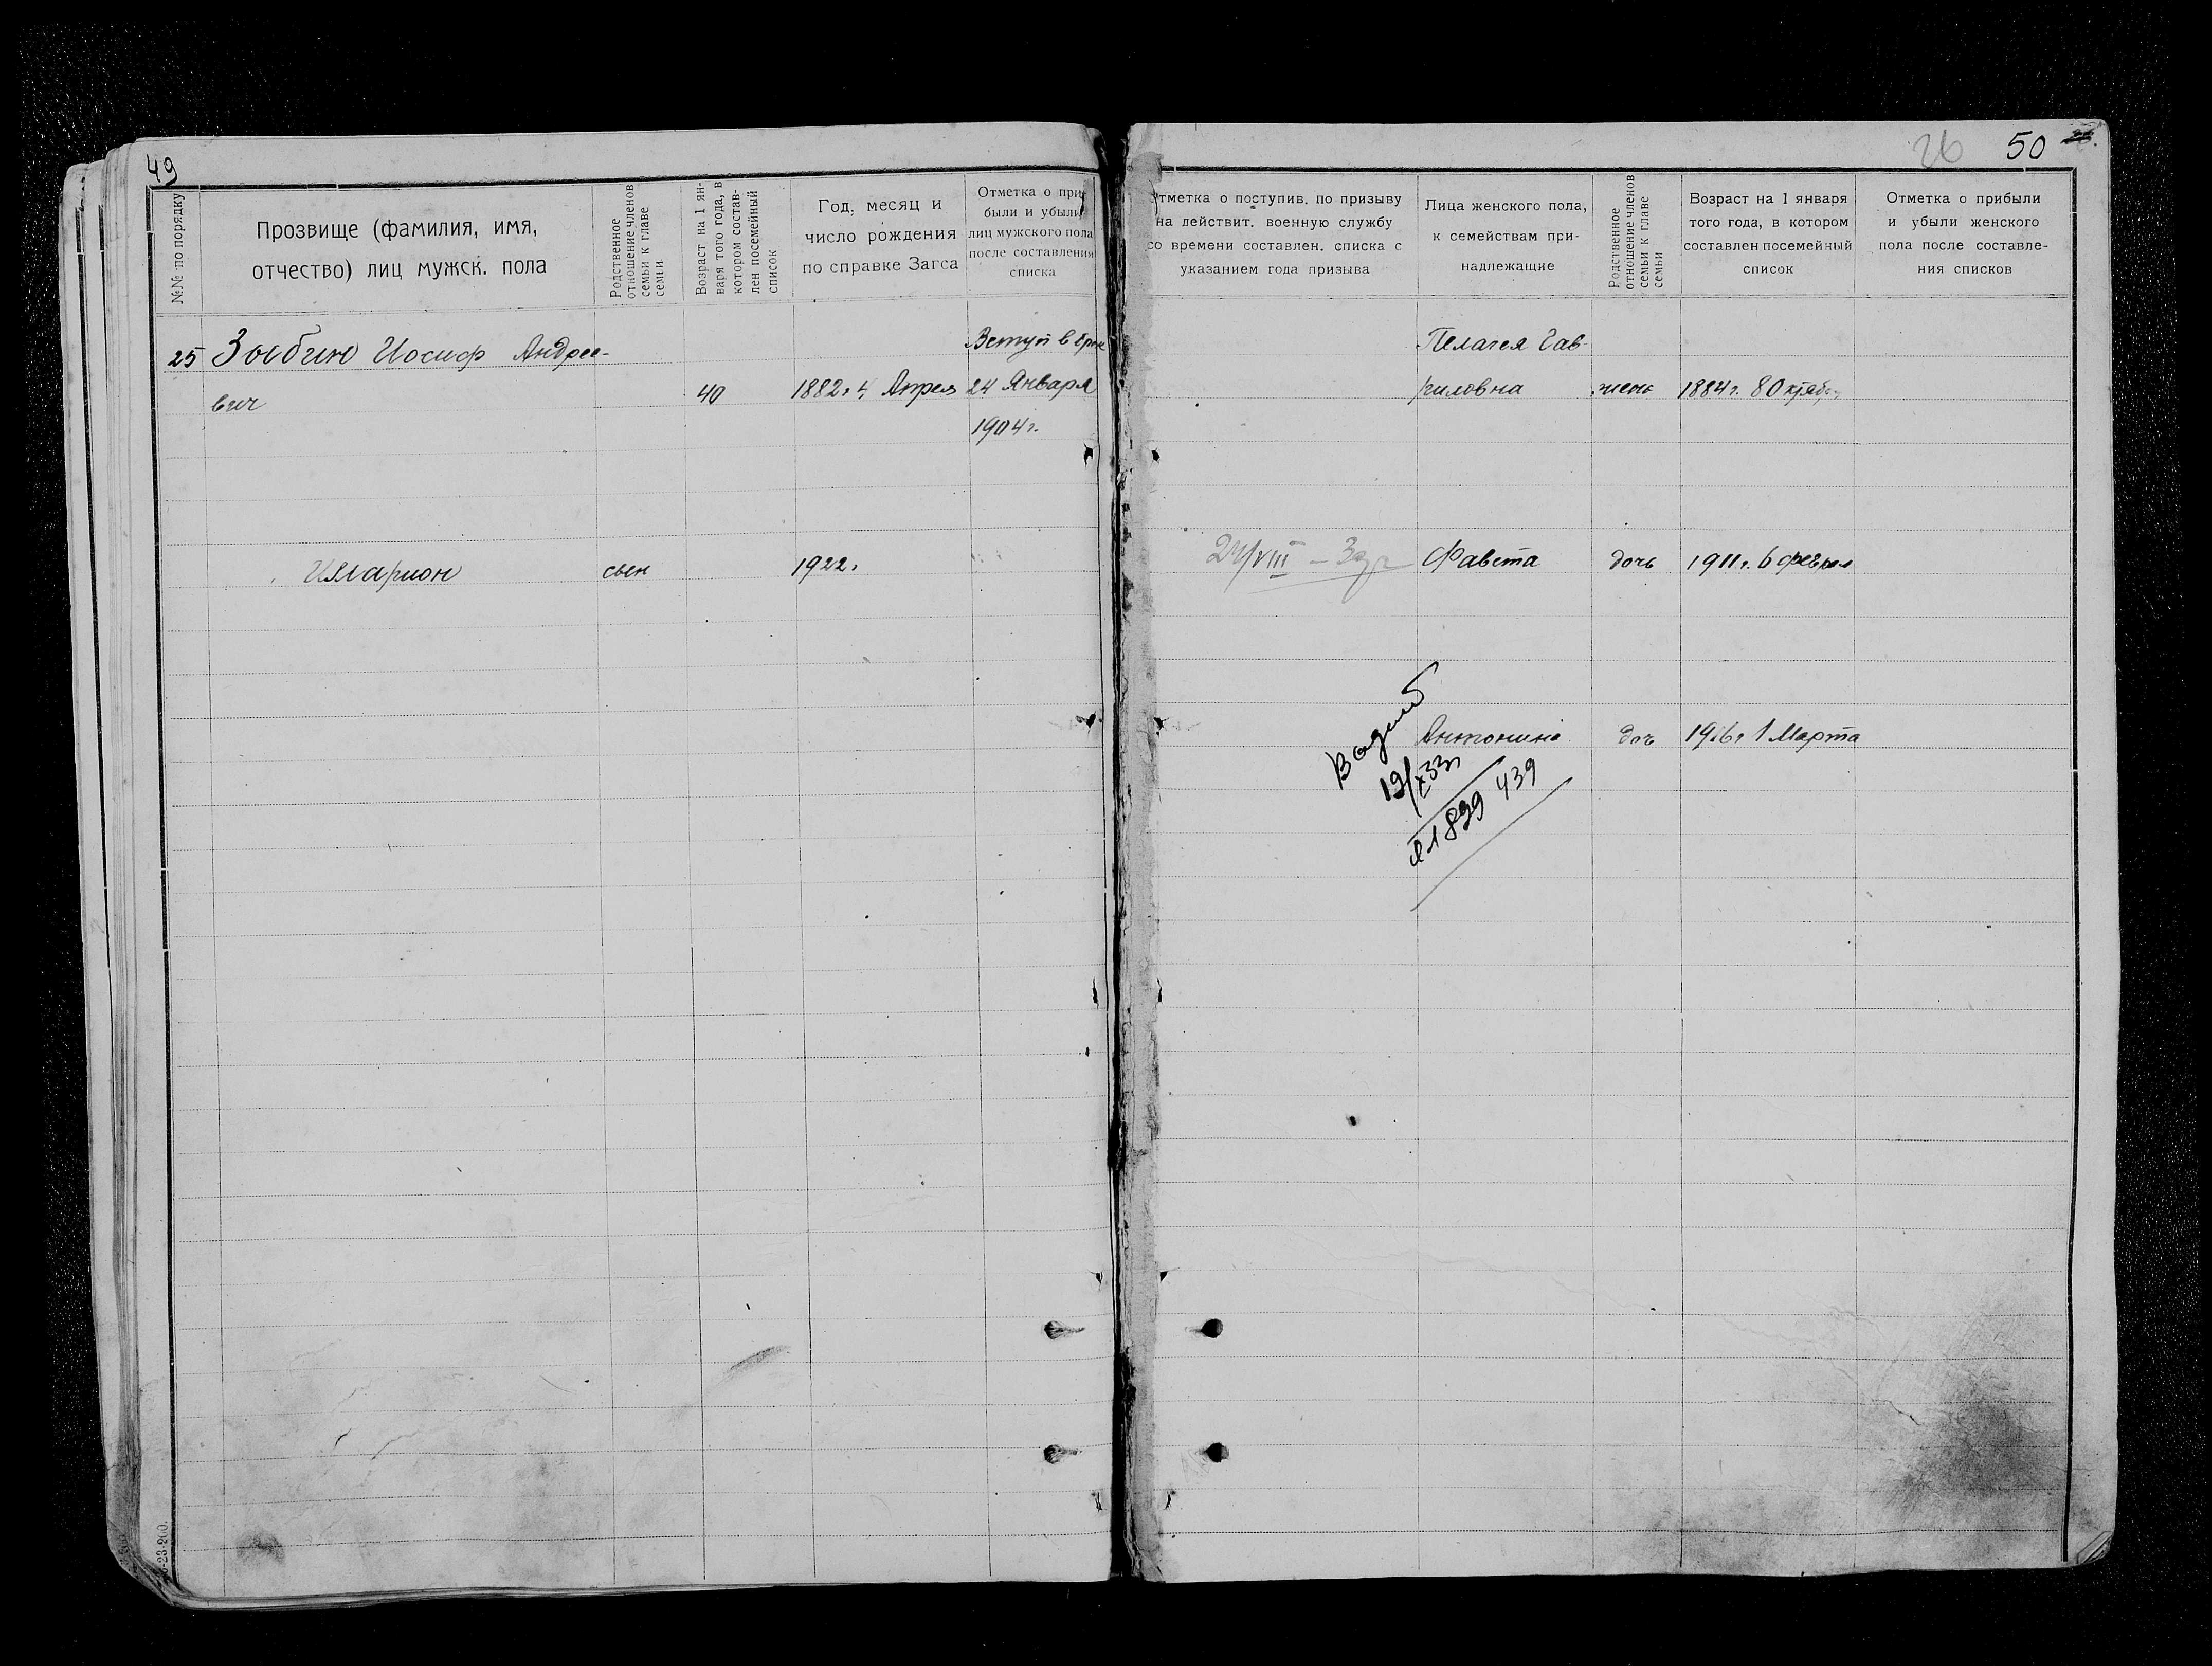 49
№№ по порядку
Прозвище (фамилия, имя,
отчество) лиц мужск. пола
Родственное
отношение членов
семьи к главе
семьи
Возраст на 1 ян-
варя того года, в
котором состав-
лен посемейный
список
Год, месяц и
число рождения
по справке Загса
Отметка о при
были и убыли
лиц мужского пола
после составления
списка
25 Зыбин Иосиф Андрее-
вич
40
1882 г. 4 Апреля
Вступ в брак
24 Января
1904 г.
Илларион
сын
1922 г.
-23-200.
26 50
тметка о поступив. по призыву
на действит. военную службу
со времени составлен. списка с
указанием года призыва
Лица женского пола,
к семействам при-
надлежащие
Родственное
отношение членов
семьи к главе
семьи
Возраст на 1 января
того года, в котором
составлен посемейный
список
Отметка о прибыли
и убыли женского
пола после составле-
ния списков
Пелагея Гав-
риловна
жена
1884 г. 8 Октябр
Фавста
дочь
1911 г. 6 феврал
Антонина
доч
1916 г 1 Марта
19/X 33 г
439